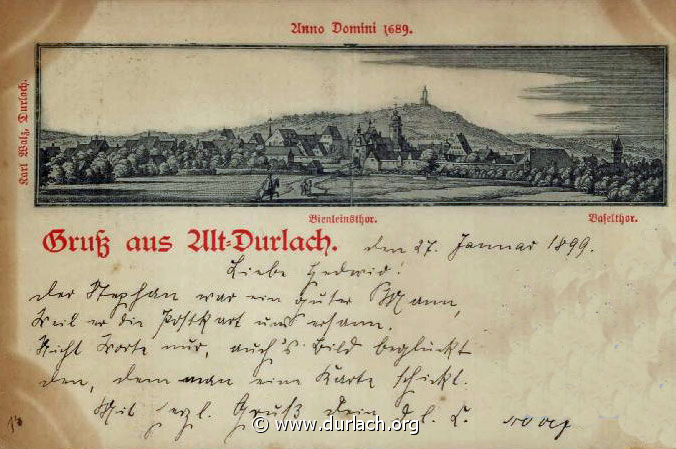 Anno Domini 1689.
Karl Walz, Durlach.
Bienleinsthor.
Baselthor.
Gruß aus Alt-Durlach.
den 27. Januar 1899.
Liebe Hedwig!
der Stephan war ein guter Mann,
Weil er die Postkart uns ersann.
Nicht Worte nur, auch's Bild beglückt
den, dem man eine Karte schickt.
Mit herzl. Gruß Dein
© www.durlach.org